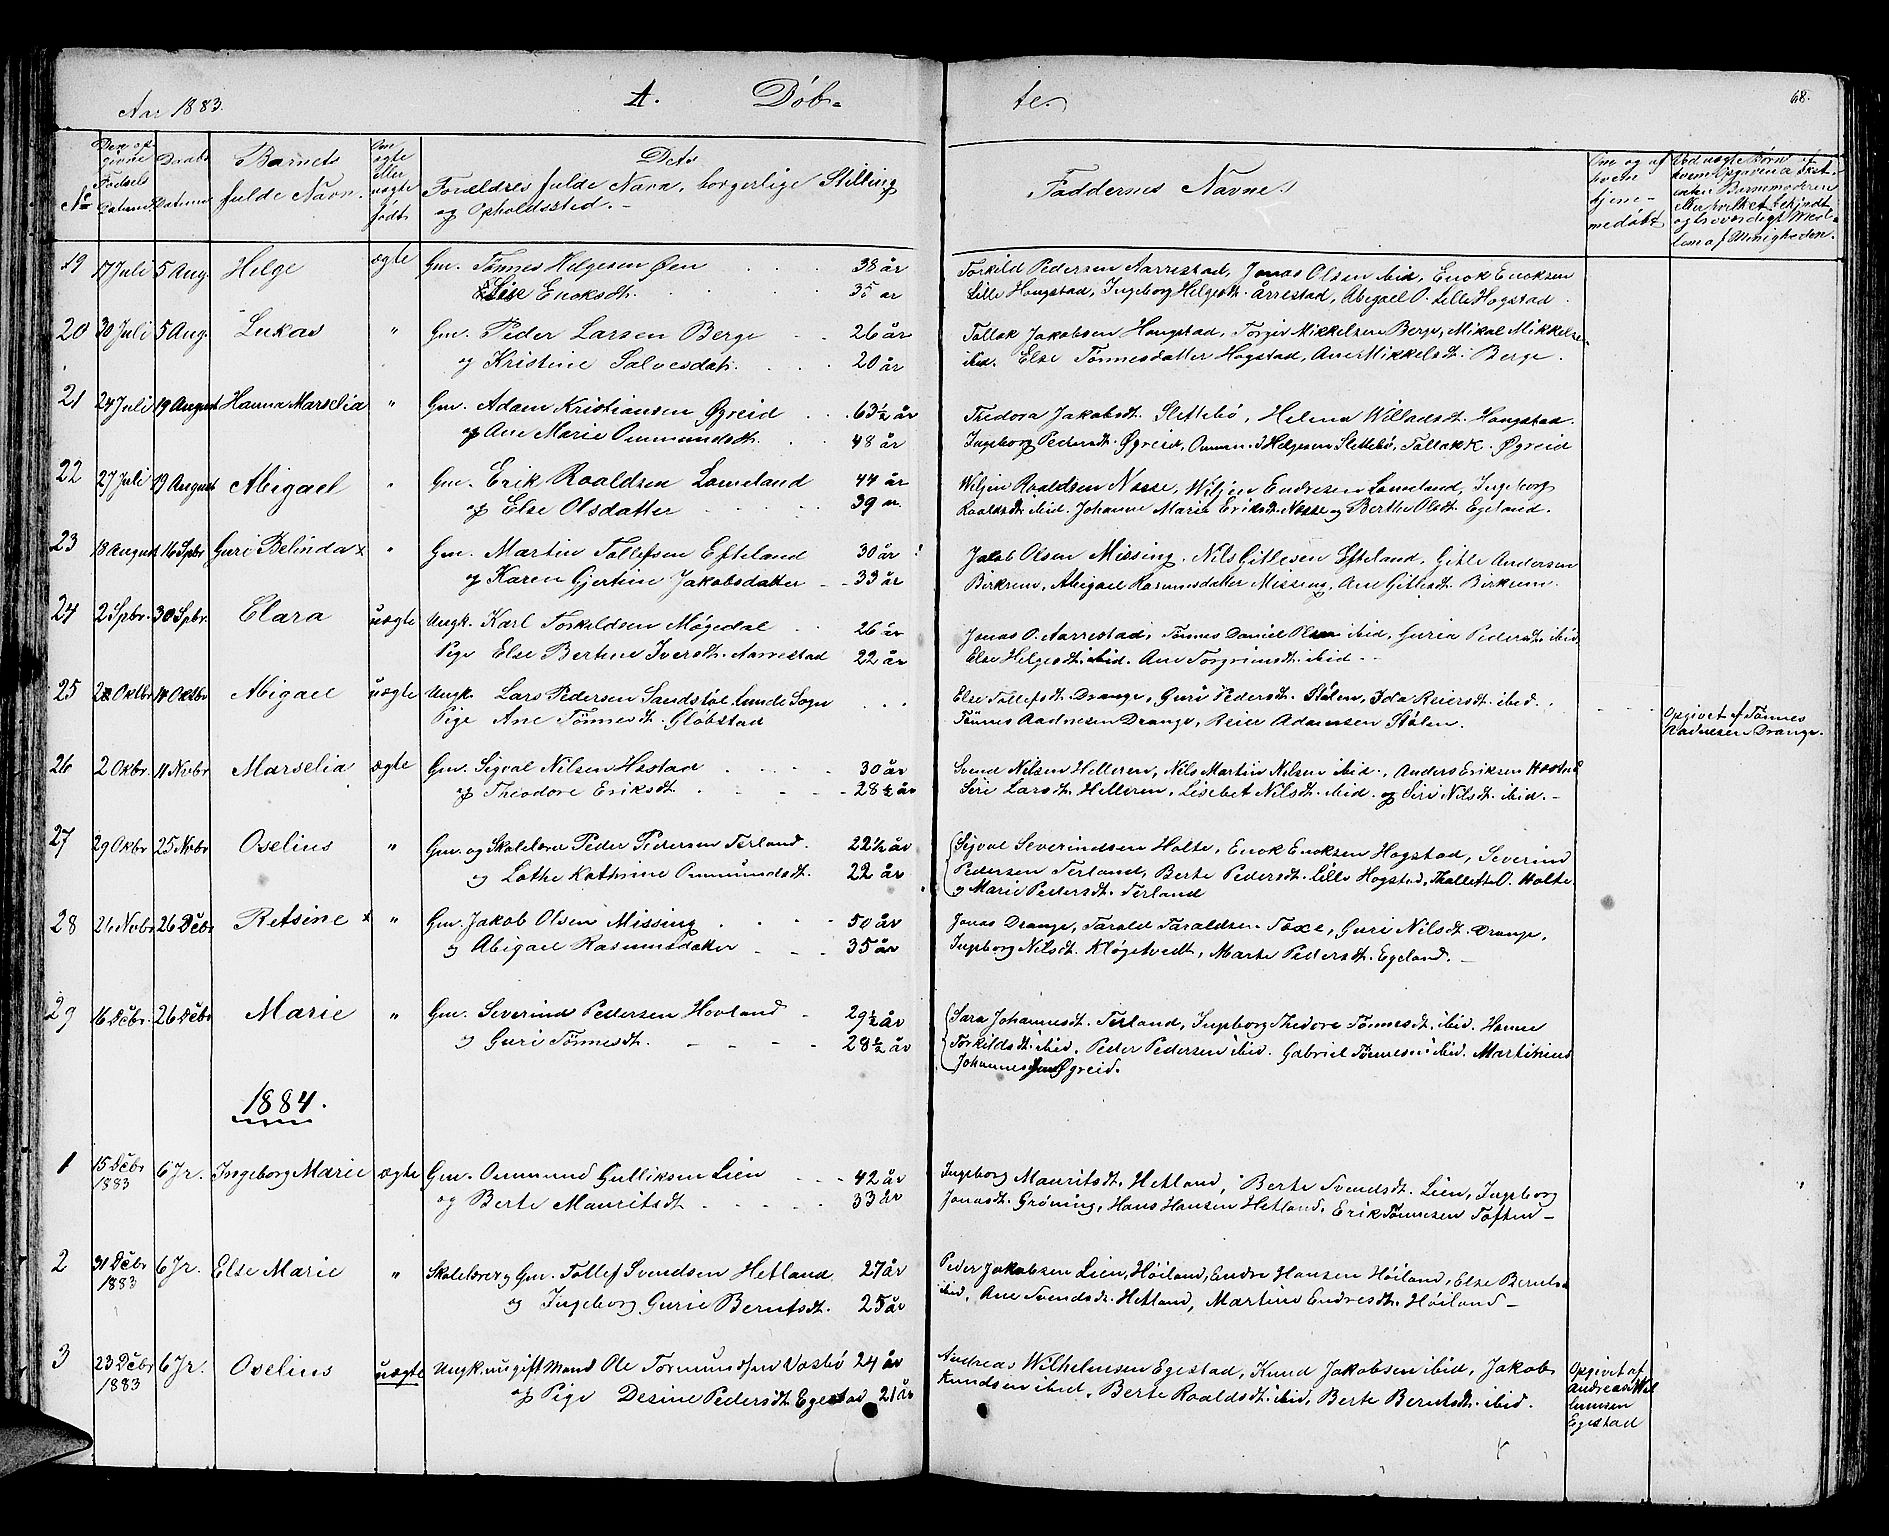 Aar 1883.
A. Døb-
te.
68.
No
Den op-
givne
Fødsels
Datum
Daabs
Datum
Barnets
fulde Navn.
Om
ægte
eller
uægte
født
Dets
Forældres fulde Navn, borgerlige Stilling
og Opholdssted.
Faddernes Navne
Om og af
hvem
hjem-
medøbt
Ved uægte Børn af
hvem Opgivena
Barnemoderen
eller hvilket bekjendt
og troværdigt Med-
lem af Menigheden.
19 17 Juli 5 Aug. Helge ægte Gm. Tønnes Helgesen Øen 38 år
Enoksdt. 35 ar
Torkild Pedersen Aarrestad, Jonas Olsen ibid, Enok Enoksen
Lille Hougstad, Ingeborg Helgesdt. Årrestad, Abigael O. Lille Hogstad
20 30 Juli 5 Aug. Lukas " Gm. Peder Larsen Berge 26 år
og Kristine Salvesdatr. 20 år
Tollak Jakobsen Hougstad, Torgir Mikkelsen Berge, Mikal Mikkelse-
ibid. Else Tønnesdatter Hogstad, Ane Mikkelsdt. Berge.
21 24 Juli 19 August Hanna Marselia " Gm. Adam Kristiansen Øgreid 63½ år
og Ane Marie Ommundsdt. 48 år
Thedora Jakobsdt. Slettebø, Helena Willadsdt. Hougstad.
Ingeborg Pedersdt. Øgreid, Ommund Helgesen Slettebø, Tollak K. Øgreid
22 27 Juli 19 August Abigael " Gm. Erik Roaldsen Lomeland 44 år
og Else Olsdatter 39 "
Wiljen Roaldsen Nesse, Wiljen Endresen Lomeland, Ingeborg
Roaldsdt. ibid. Johanne Marie Eriksdt. Nesse og Berthe Olsdt. Egeland.
23 18 August 16 Spbr. Guri Belinda x " Gm. Martin Tollefsen Efteland 30 år
og Karen Gjertine Jakobsdatter 33 år
Jakob Olsen Missing, Nils Gitlesen Efteland, Gitle Andersen
Birkrem, Abigael Rasmusdatter Missing, Ane Gitlesdt. Birkrem.
24 2 Spbr. 30 Spbr. Clara uægte Ungk. Karl Torkildsen Møgedal 26 år
Pige Else Bertine Iversdt. Aarrestad 22 år
Jonas O. Aarrestad, Tønnes Daniel Olsen ibid, Guria Pedersdt. ibid
Else Helgesdt. ibid. Ane Torgrimsdt. ibid
25 Oktbr. Oktbr. Abigael uægte Ungk. Lars Pedersen Sandstøl Lunde Sogn
Pige Ane Tønnesdt. Gløbstad
Else Tollefsdt. Drange, Guri Pedersdt. Stølen, Ida Reiersdt. ibid.
Tønnes Aadnesen Drange, Reier Adamsen Stølen.
Opgivet af Tønnes
Aadnesen Drange.
26 2 Okbr. 11 Novbr Marselia ægte Gm. Sigval Nilsen Hæstad 30 år
og Theodore Eriksdt. 28½ år
Svend Nilsen Helleren, Nils Martin Nilsen ibid., Anders Eriksen Hæstad
Siri Larsdt. Helleren, Lisebet Nilsdt. ibid. og Siri Nilsdt. ibid.
27 29 Okbr 25 Novbr Oselius " Gm. og Skolelærer Peder Pedersen Terland. 22½ år
og Lothe Kathrine Ommundsdt. 22 år
Sigval Severindsen Holte, Enok Enoksen Hogstad, Severind
Pedersen Terland, Berte Pedersdt. Lille Hogstad, Thallette O. Holte
og Marie Pedersdt. Terland
28 Novbr 26 Dcbr Retsine x " Gm. Jakob Olsen Missing 50 år
og Abigael Rasmusdatter 35 år
Jonas Drange, Tarald Taraldsen Toxe, Guri Nilsdt. Drange,
Ingeborg Nilsdt. Kløgetvedt, Marte Pedersdt. Egeland.
29 16 Dcbr. 26 Dcbr Marie " Gm. Severind Pedersen Hovland 29½ år
og Guri Tønnesdt. 28½ år
Sara Johannesdt. Terland, Ingeborg Thedore Tønnesdt. ibid. Hanne
Torkildsdt. ibid, Peder Pedersen ibid. Gabriel Tønnesen ibid. Martinius
Johannessen Øgreid.
1884.
1 15 Dcbr 1883 6 Jr. Ingeborg Marie ægte Gm. Ommund Gulliksen Lien 42 år
og Berte Mauritsdt 33 år
Ingeborg Mauritsdt. Hetland, Berte Svendsdt. Lien, Ingeborg
Jonasdt. Grøning, Hans Hansen Hetland, Erik Tønnesen Toften
2 31 Dcbr 1883 6 Jr. Else Marie " Skolelærer og Gm. Tollef Svendsen Hetland 27 år
og Ingeborg Gurie Berntsdt. 25 år
Peder Jakobsen Lien, Høiland, Endre Hansen Høiland, Else Bernts-
ibid, Ane Svendsdt. Hetland, Martine Endresdt. Høiland
3 23 Dcbr 1883 6 Jr. Oselius uægte Ungk. ugift Mand Ole Tormundsen Vasbø 24 år
og Pige Desine Pedersdt. Egestad 21 år
Andreas Wilhelmsen Egestad, Knud Jakobsen ibid, Jakob
Knudsen ibid, Berte Roaldsdt. ibid, Berte Berntsdt. ibid.
Opgivet af
Andreas Wil
helmsen
Egestad